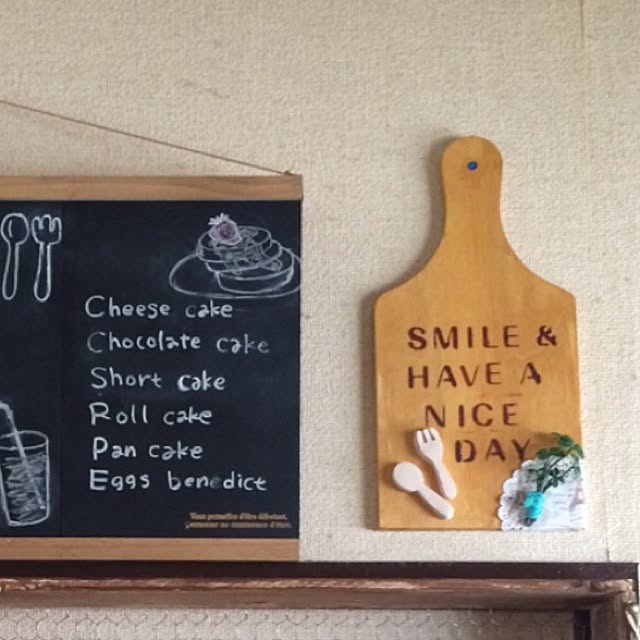 Cheese cake
Chocolate cake
Short cake
Roll cake
Pan cake
Eggs benedict
SMILE &
HAVE A
NICE
DAY